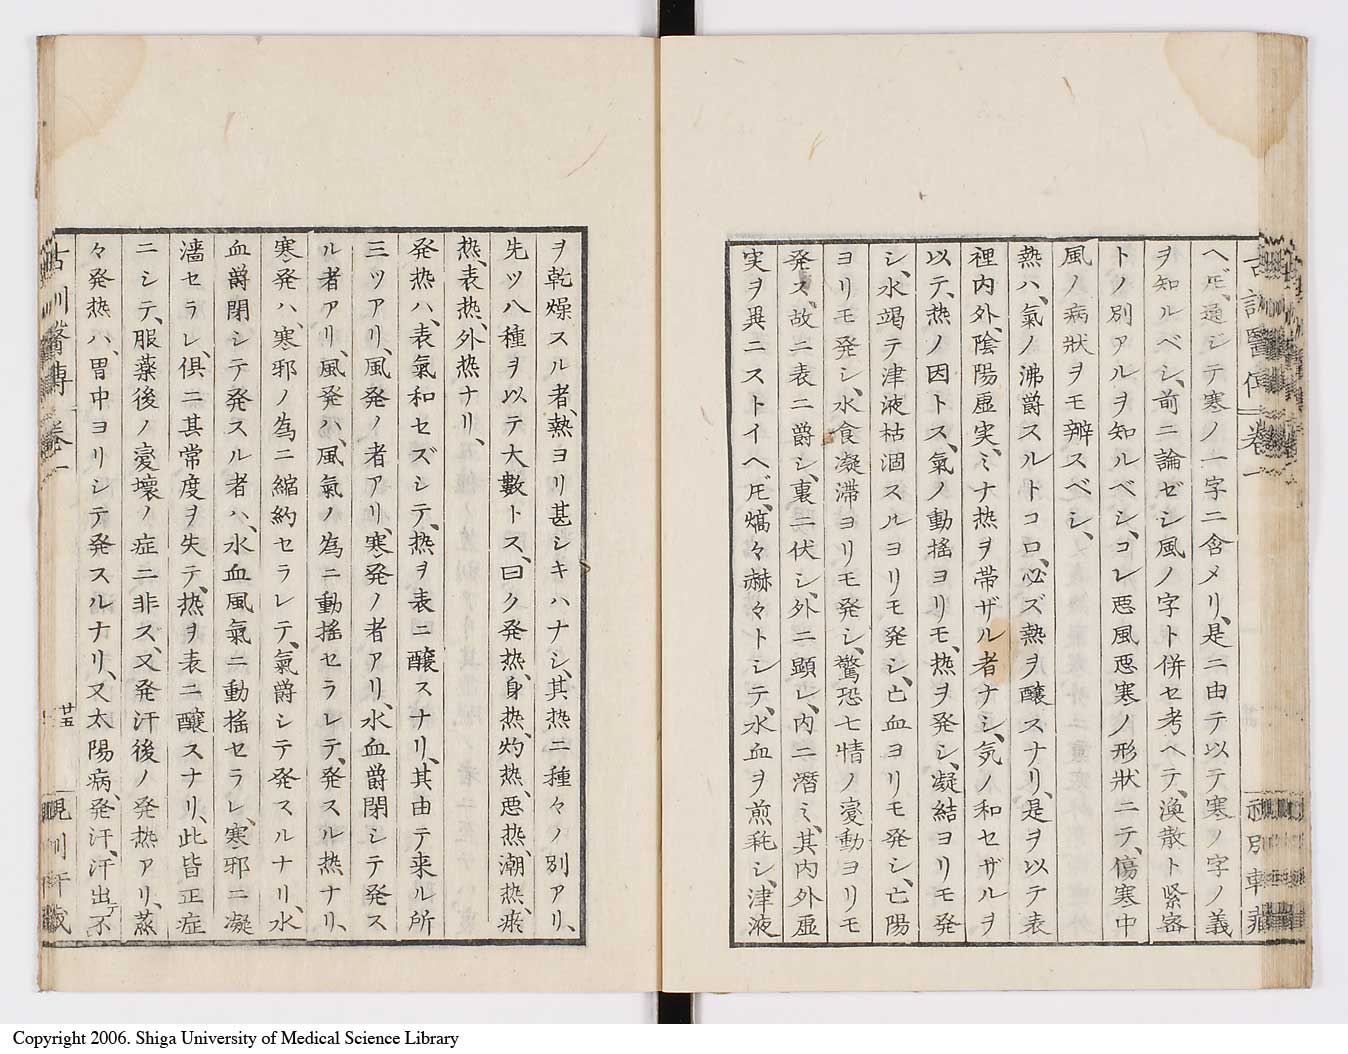 ヘ𪜈、通ジテ寒ノ一字ニ含メリ、是ニ由テ以テ寒ノ字ノ義
ヲ知ルベシ、前ニ論ゼシ風ノ字ト併セ考ヘテ、渙散ト緊密
トノ別アルヲ知ルベシ、コレ悪風悪寒ノ形狀ニテ、傷寒中
風ノ病狀ヲモ辨スベシ、
熱ハ、氣ノ沸爵スルトコロ、必ズ熱ヲ醸スナリ、是ヲ以テ表
裡内外、陰陽虚実、ミナ热ヲ帯ザル者ナシ、気ノ和セザルヲ
以テ、热ノ因トス、氣ノ動揺ヨリモ、热ヲ発シ、凝結ヨリモ発
シ、水竭テ津液枯涸スルヨリモ発シ、亡血ヨリモ発シ、亡陽
ヨリモ発シ、水食凝滞ヨリモ発シ、驚恐七情ノ変動ヨリモ
発ス、故ニ表ニ爵シ、裏ニ伏シ、外ニ顕レ、内ニ潜ミ、其内外虚
実ヲ異ニストイヘ𪜈、熇々赫々トシテ、水血ヲ煎耗シ、津液
ヲ乾燥スル者、熱ヨリ甚シキハナシ、其热ニ種々ノ別アリ、
先ツ八種ヲ以テ大數トス、曰ク発热、身热、灼热、悪热、潮热、瘀
热、表热、外热ナリ、
発热ハ、表氣和セズシテ、热ヲ表ニ醸スナリ、其由テ来ル所
三ツアリ、風発ノ者アリ、寒発ノ者アリ、水血爵閉シテ発ス
ル者アリ、風発ハ、風氣ノ為ニ動揺セラレテ、発スル热ナリ、
寒発ハ、寒邪ノ為ニ縮約セラレテ、氣爵シテ発スルナリ、水
血爵閉シテ発スル者ハ、水血風氣ニ動揺セラレ、寒邪ニ凝
濇セラレ、倶ニ其常度ヲ失テ、热ヲ表ニ醸スナリ、此皆正症
ニシテ、服薬後ノ変壊ノ症ニ非ス、又発汗後ノ発热アリ、蒸
々発热ハ、胃中ヨリシテ発スルナリ、又太陽病、発汗、汗出テ不
廿五